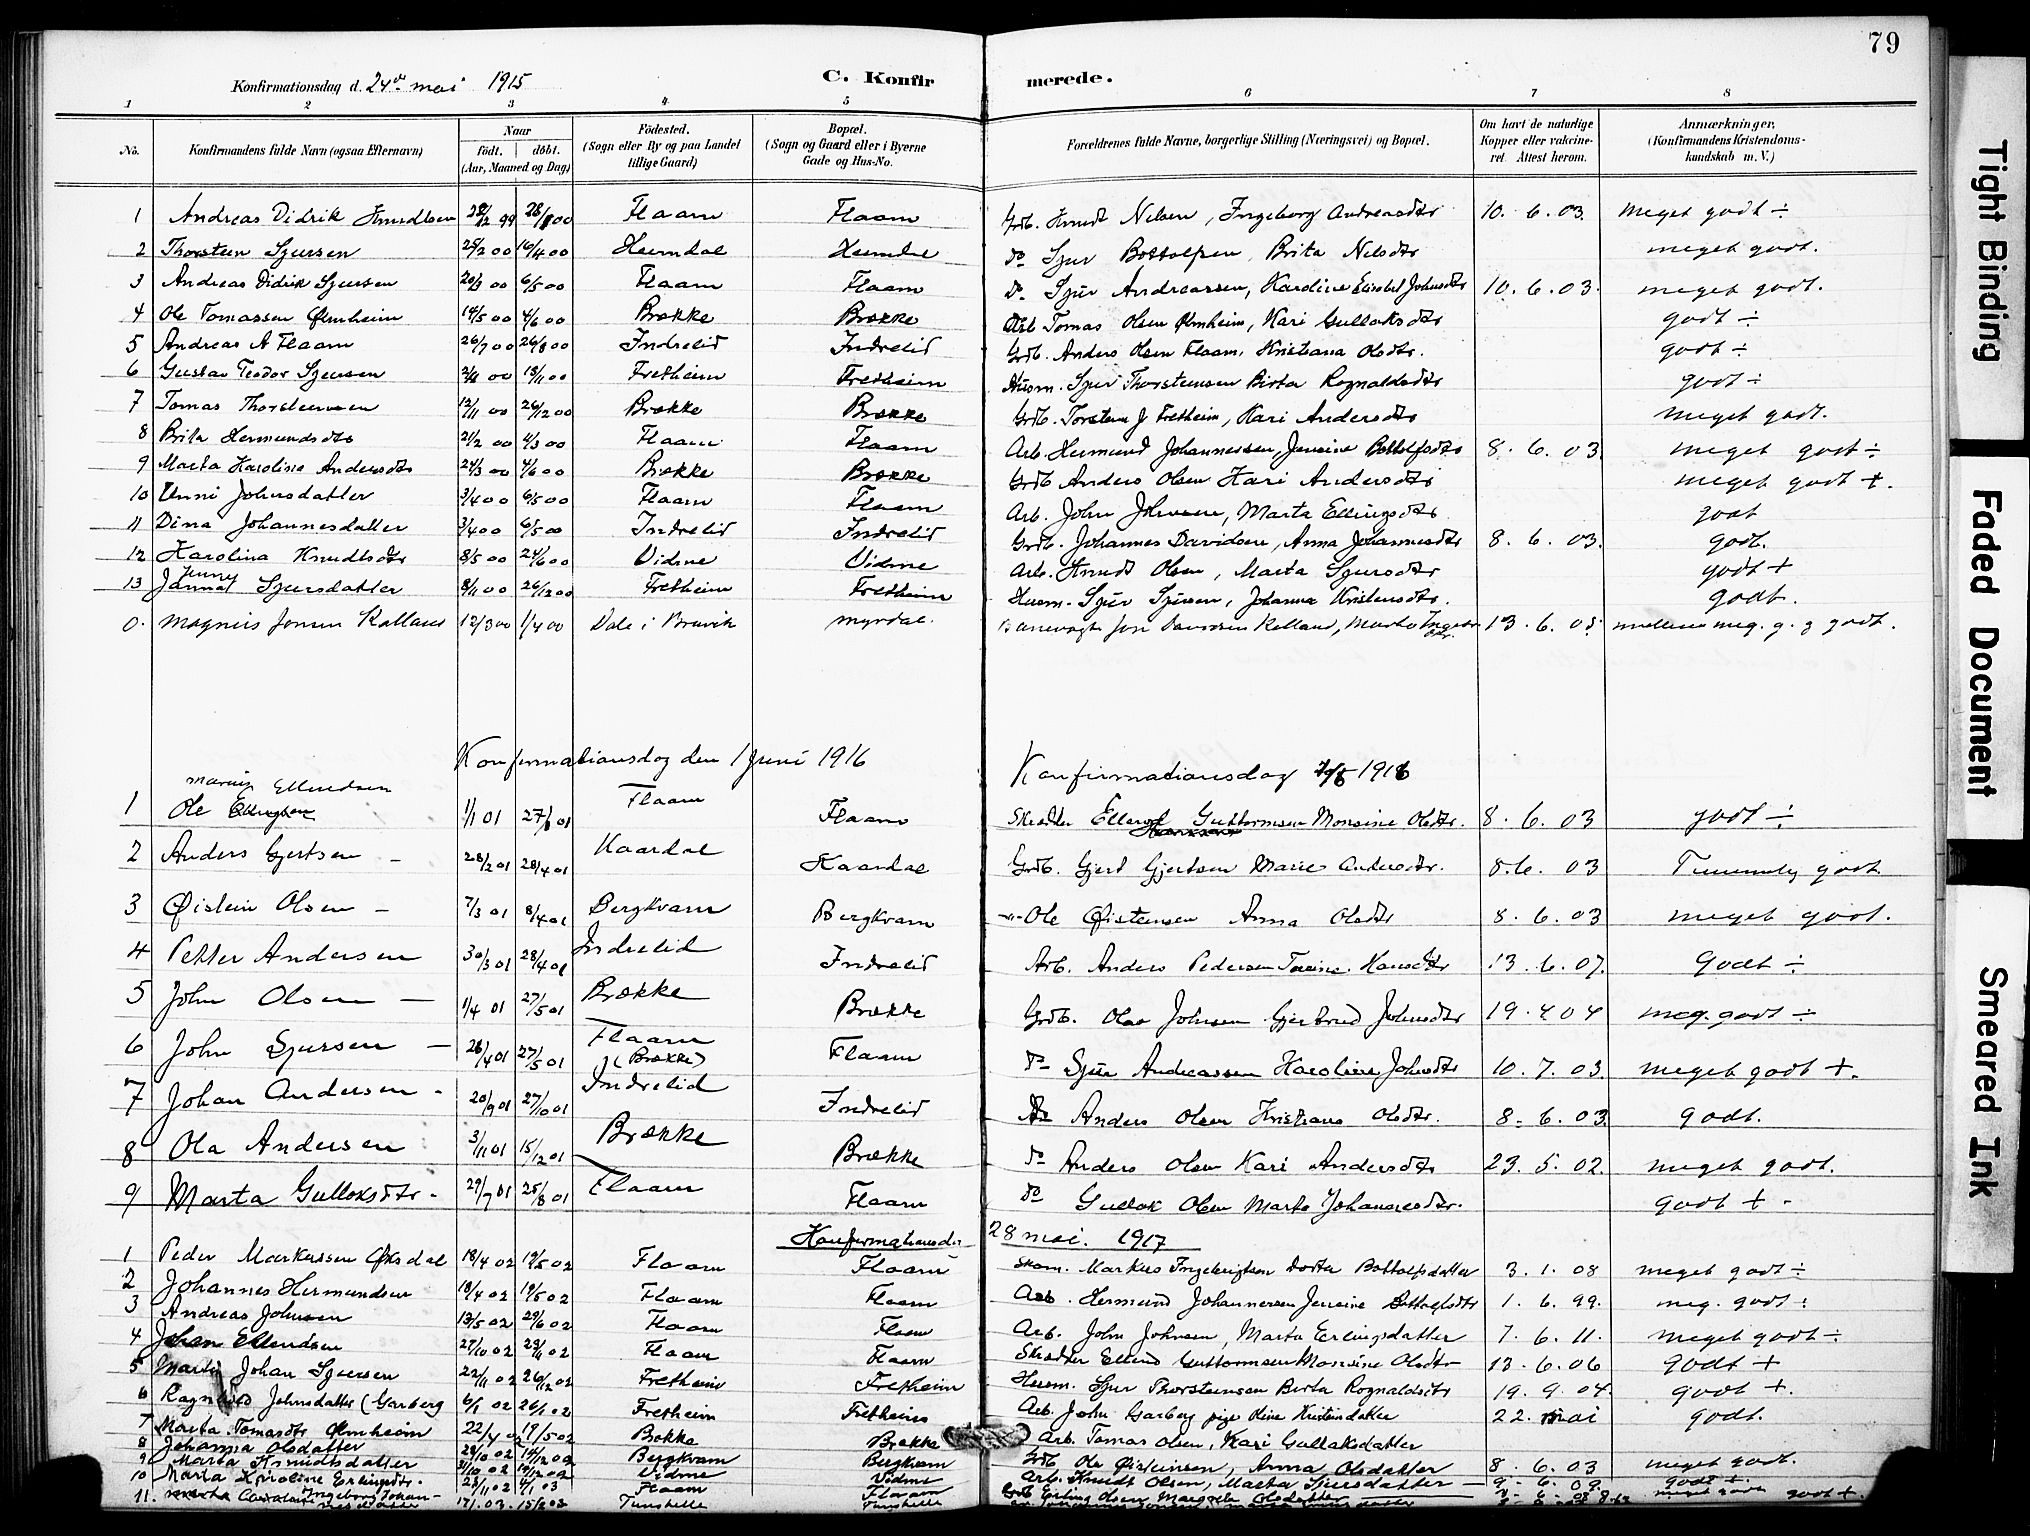 79
Konfirmationsdag d. 24de mai 1915
C. Konfirmerede.
1 2 3 4 5 6 7 8
No. Konfirmandens fulde Navn (ogsaa Efternavn) Naar födt. döbt. (Aar, Maaned og Dag) Födested. (Sogn eller By og paa Landet tillige Gaard) Bopæl. (Sogn og Gaard eller i Byerne Gade og Hus-No. Forældrenes fulde Navne, borgerlige Stilling (Næringsvei) og Bopæl. Om havt de naturlige Kopper eller vakcineret. Attest herom. Anmærkninger, (Konfirmandens Kristendomskundskab m. V.)
1 Andreas Didrik Knudtsen 28/1 00 Flaam Flaam Grdb. Knudt Nilsen, Ingeborg Andreasdtr 10. 6. 03. Meget godt ÷
2 Thorstein Sjursen 25/2 00 16/4 00 Heimdal Heimdal do Sjur Bottolfsen, Brita Nilsdtr meget godt.
3 Andreas Didrik Sjursen 20/3 00 6/5 00 Flaam Flaam do Sjur Andreassen, Karoline Elisabet Johnsdtr 10. 6. 03. meget godt.
4 Ole Tomassen Ølmheim 14/5 00 4/6 00 Brække Brække Arb Tomas Olsen Ølmheim, Kari Gullaksdtr godt ÷
5 Andreas A Flaam 26/7 00 26/8 00 Indrelid Indrelid Grdb. Anders Olsen Flaam, Kristiana Olsdtr. godt ÷
6 Gustav Teodor Sjursen 18/11 00 Fretheim Fretheim Husm. Sjur Thorsteinsen Birta Rognaldsdtr godt ÷
7 Tomas Thorsteinsen 12/11 00 26/12 00 Brække Brække Grdb. Torstein J Fretheim, Kari Andersdtr meget godt.
8 Brita Hermundsdtr 21/2 00 4/3 00 Flaam Flaam Arb. Hermund Johannessen, Jensine Bottolfsdtr 8. 6. 03. meget godt ÷
9 Marta Karoline Andersdtr 24/3 00 4/6 00 Brække Brække Grdb Anders Olsen Kari Andersdtr meget godt +.
10 Unni Johnsdatter 3/4 00 6/5 00 Flaam Flaam Arb. John Johnsen, Marta Ellingsdtr godt
11 Dina Johannesdatter 3/4 00 6/5 00 Indrelid Indrelid Grdb. Johannes Davidsen, Anna Johannesdtr 8. 6. 03. godt.
12 Karolina Knudtsdtr 8/5 00 24/6 00 Vidme Vidme Arb. Knudt Olsen, Marta Sjursdtr godt +
13 Jenny Sjursdatter 8/11 00 26/12 00 Fretheim Fretheim Husm. Sjur Sjursen, Johanna Kristensdtr. godt.
0. Magnus Jonsen Kalland 12/3 00 1/4 00 Dale i Bruvik Myrdal. Banevogt Jon Kalland, Marta 13. 6. 05. mellem meg. g. g godt.
Konfirmationsdag den 1 juni 1916
Konfirmationsdag 1916
1 Ole Marius Ellendsen 1/1 01 Flaam Flaam Skrædder Ellend Guttormsen Monsine Olsdtr. 8. 6. 03 godt ÷
2 Anders Gjertsen – 28/2 01 28/4 01 Kaardal Kaardal Grdb. Gjert Gjertsen Marie Andersdtr. 8. 6. 03 Temmelig godt
3 Øistein Olsen – 7/3 01 8/4 01 Bergkvam Bergkvam -"- Ole Øistensen Anna Olsdtr 8. 6. 03 meget godt.
4 Petter Andersen 30/3 01 28/4 01 Indrelid Indrelid Arb. Anders Pedersen Hansdtr 13. 6. 07. Godt ÷
5 John Olsen – 1/4 01 27/5 01 Brække Brække Grdb. Olav Johnsen Gjertrud Johnsdtr 19. 4 04 meg. godt ÷
6 John Sjursen – 26/4 01 27/5 01 Flaam (Brække) Flaam do Sjur Andreassen Karoline Johnsdtr 10. 7. 03. meget godt +.
7 Johan Andersen – 20/9 01 27/10 01 Indrelid Indrelid do Anders Olsen Kristiana Olsdtr. 8. 6. 03. godt.
8 Ola Andersen 3/11 01 15/12 01 Brække Brække do Anders Olsen Kari Andersdtr 23. 5. 02. meget godt.
9 Marta Gullaksdtr. – 29/7 01 25/8 01 Flaam Flaam do Gullak Olsen Marta Johannesdtr. godt +
Konfirmationsdag 28 mai. 1917
1 Peder Markussen Øksdal 18/4 02 19/5 02 Flaam Flaam Skom. Markus Ingebrigtsen Dorte Bottolfsdatter 3. 1. 08 meget godt ÷
2 Johannes Hermundsen 19/4 02 19/5 02 Flaam Flaam Arb. Hermund Johannessen Jensine Bottolfsdtr 1. 6. 99. meg. godt ÷
3 Andreas Johnsen 13/5 02 29/6 02 Flaam Flaam Arb. John Johnsen, Marta Erlingsdatter 7. 6. 11. meget godt ÷
4 Johan Ellendsen 27/10 02 Flaam Flaam Skrædder Ellend Guttormsen Monsine Olsdtr 13. 6. 06 Godt +
5 Martin Johan Sjursen 22/11 02 26/12 02 Fretheim Fretheim Husm. Sjur Thorsteinsen Birta Rognaldsdtr 19. 9. 04. godt +.
6 Ragnhild Johnsdatter (Garberg Fretheim Fretheim Arb. John Garberg pige Oline Kristendatter 22. mai godt.
7 Marta Tomasdtr Ølmheim 22/4 02 19/5 02 Brække Brække Arb. Tomas Olsen, Kari Gullaksdatter
8 Johanna Olsdatter Bergkvam Bergkvam Grdb Ole Øistensen, Anna Olsdatter 8. 6. 03 meget godt.
9 Marta Knudtsdatter Vidme Vidme Arb. Knudt Olsen, Marta Sjursdatter 9. 6. 09. godt +.
10 Marta Karoline Erlingsdtr. Flaam Flaam Erling Olsen Margrete Olsdatter meget godt
11. Ingeborg Johannesdatter 17/1 03. 15/2 03 Tunshelle Tunshelle godt +.
Tight Binding
Faded Document
Smeared Ink